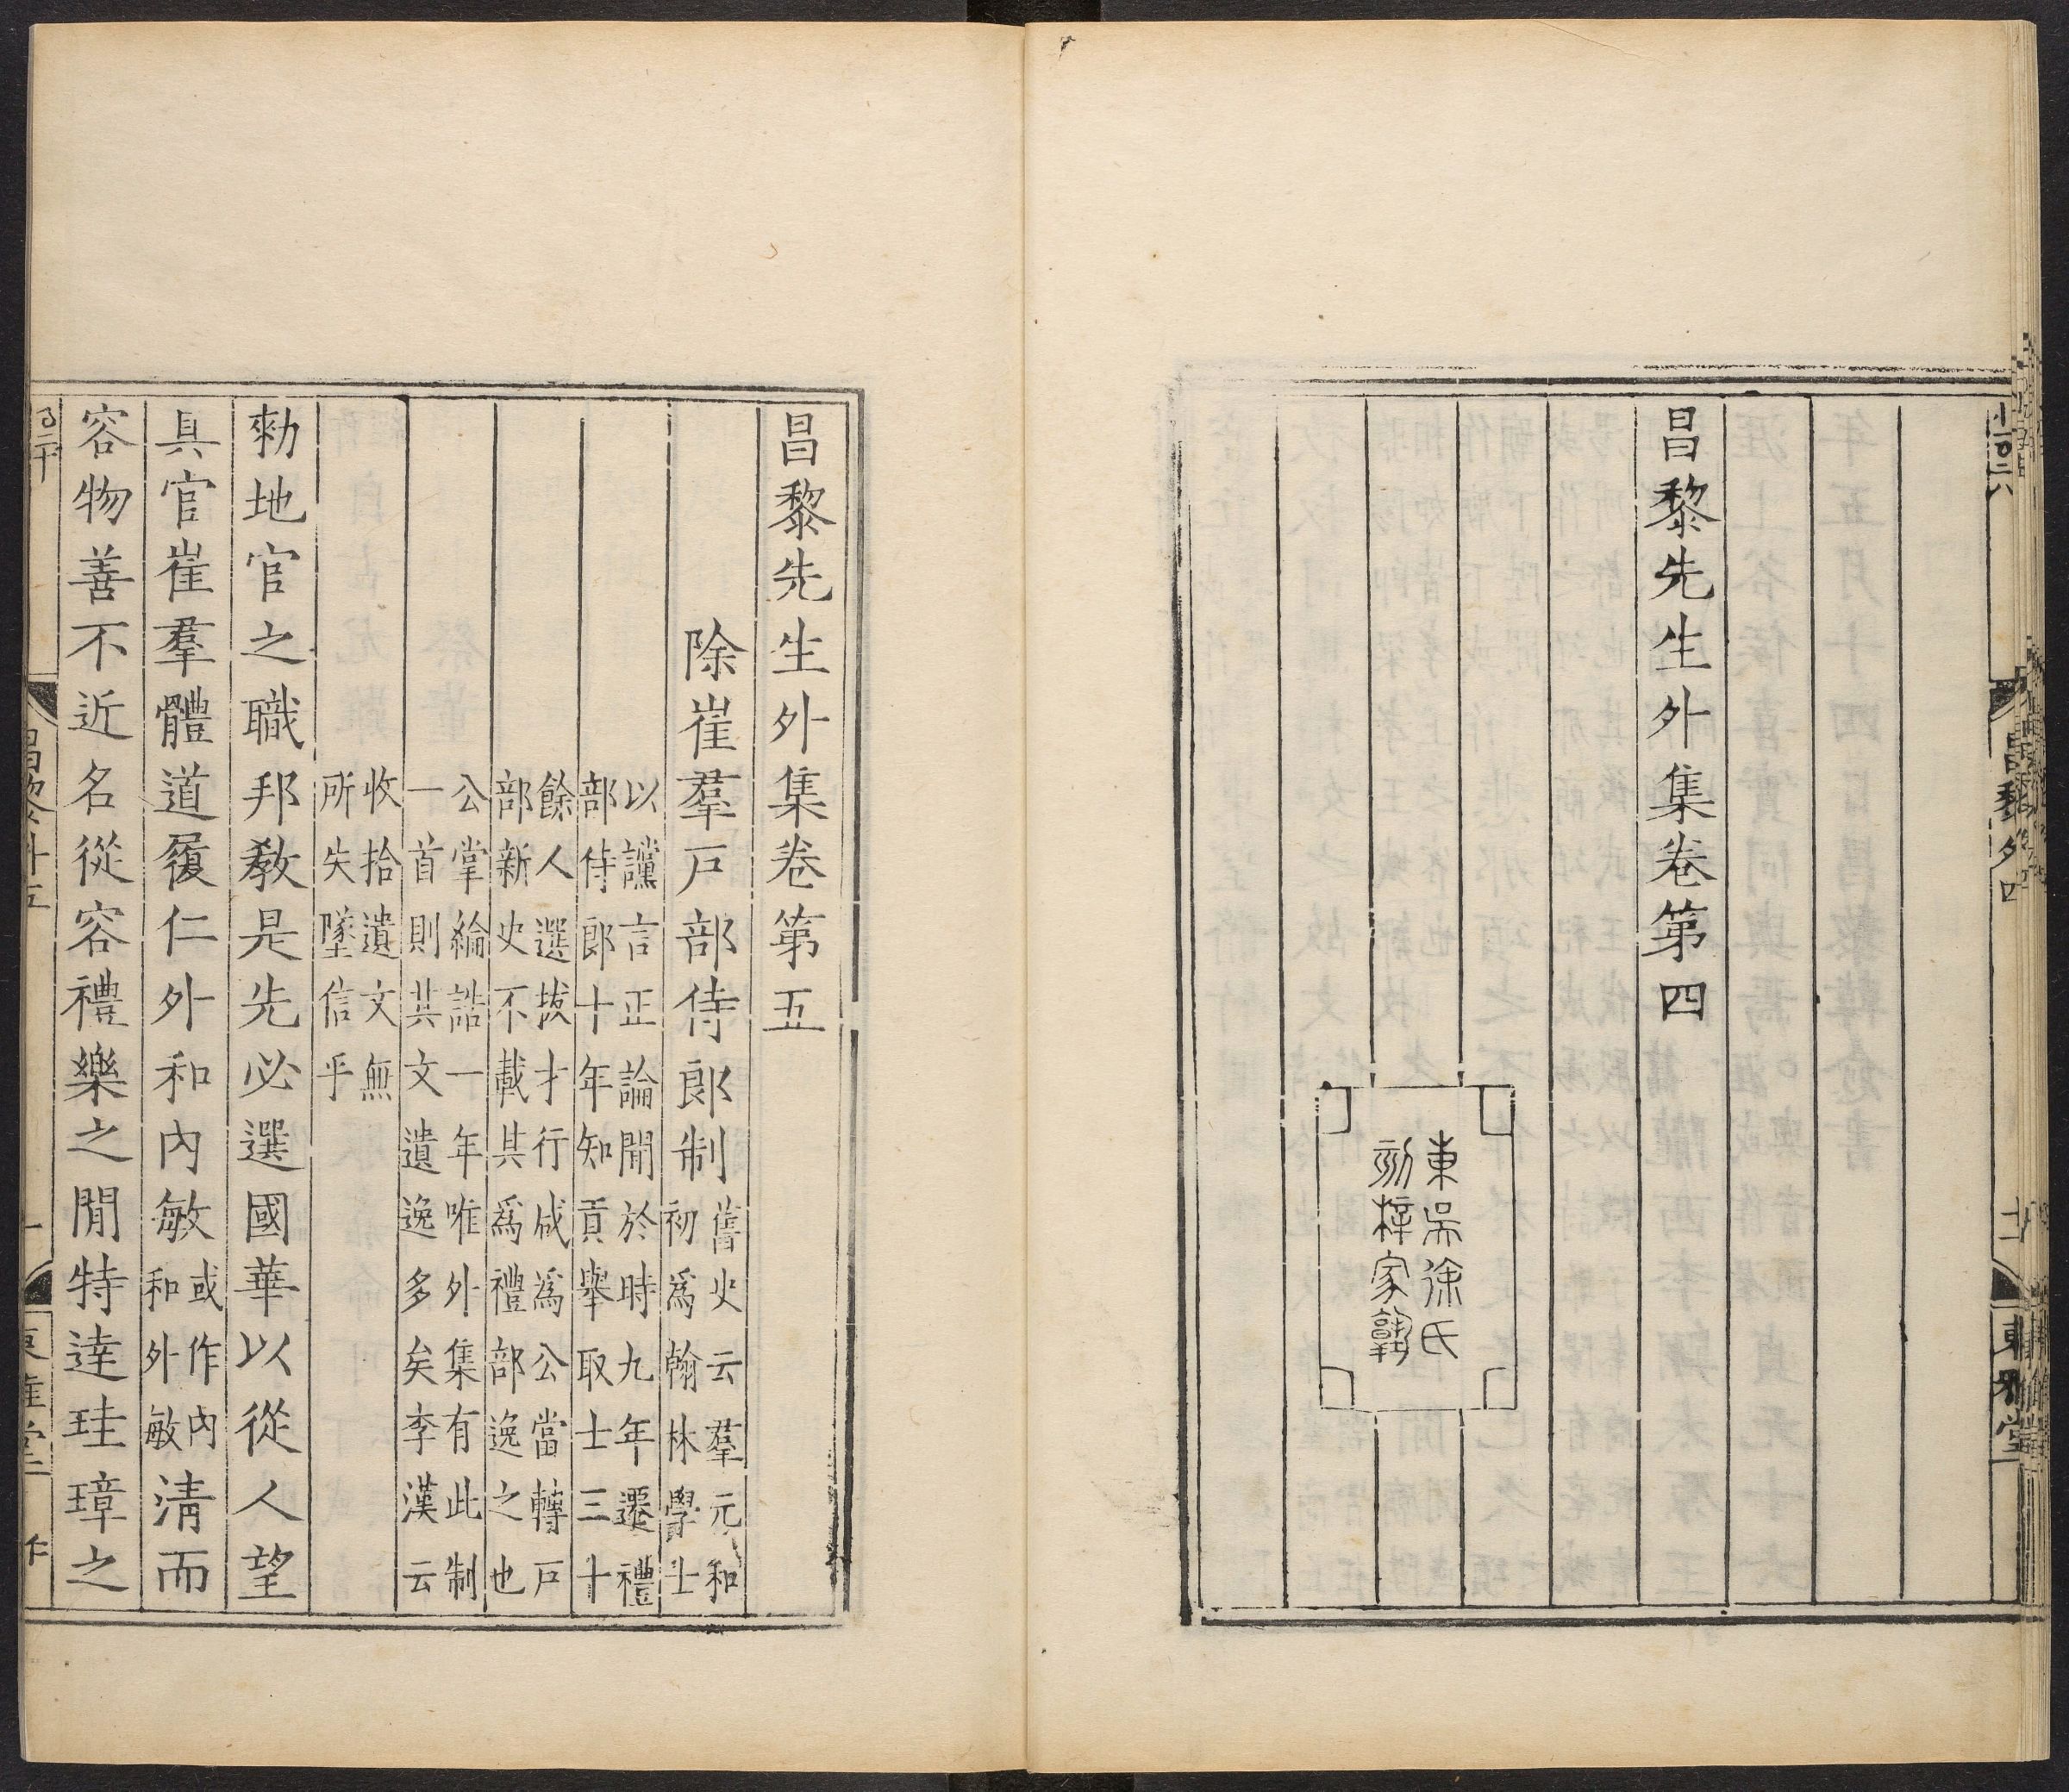 昌黎先生外集卷第四
東吳徐氏
刻梓家塾
東雅堂
昌黎先生外集卷第五
除崔羣戶部侍郎制
舊史云羣元和
初爲翰林學士
以讜言正論聞於時九年遷禮
部侍郎十年知貢舉取士三十
餘人選拔才行咸爲公當轉戶
部新史不載其爲禮部逸之也
公掌綸誥一年唯外集有此制
一首則其文遺逸多矣李漢云
收拾遺文無
所失墜信乎
勑地官之職邦教是先必選國華以從人望
具官崔羣體道履仁外和內敏
或作內
和外敏
清而
容物善不近名從容禮樂之閒特達珪璋之